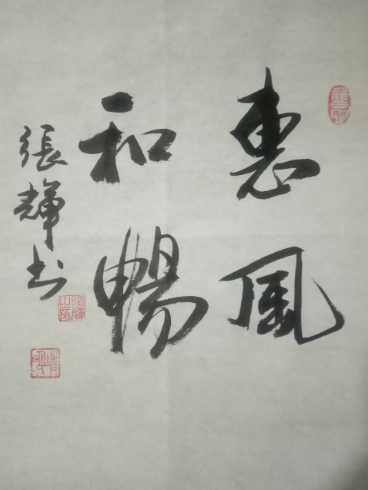 惠風
和暢
張輝书